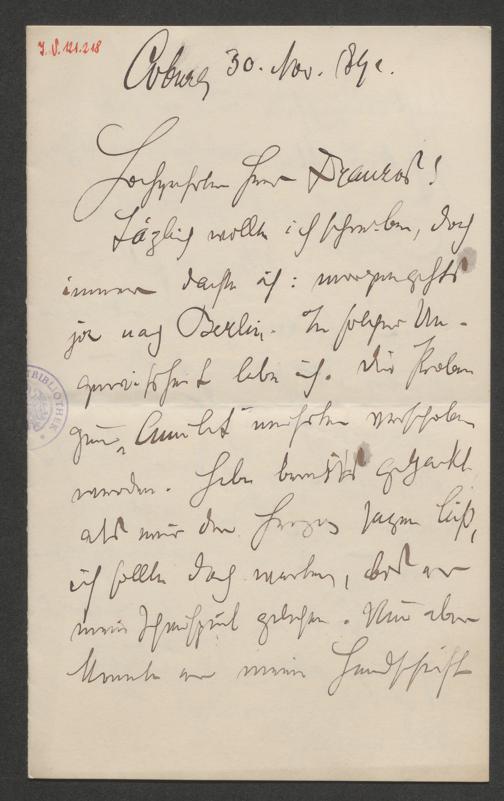 J. N. 121.218
Coburg 30. Nov. 189
Hochgeehrter Herr Franzos!
Täglich wollte ich schreiben, doch
immer dachte ich: morgen gehts
ja nach Berlin. In solcher Un-
gewißheit lebe ich. Die Proben
zum „Amulet" mußten verschoben
werden. Habe bereits gepackt
als mir der Herzog sagen ließ,
ich sollte doch warten, bis er
mein Schauspiel gelesen. Nun aber
konnte er meine Handschrift
BIBLIOTHEK